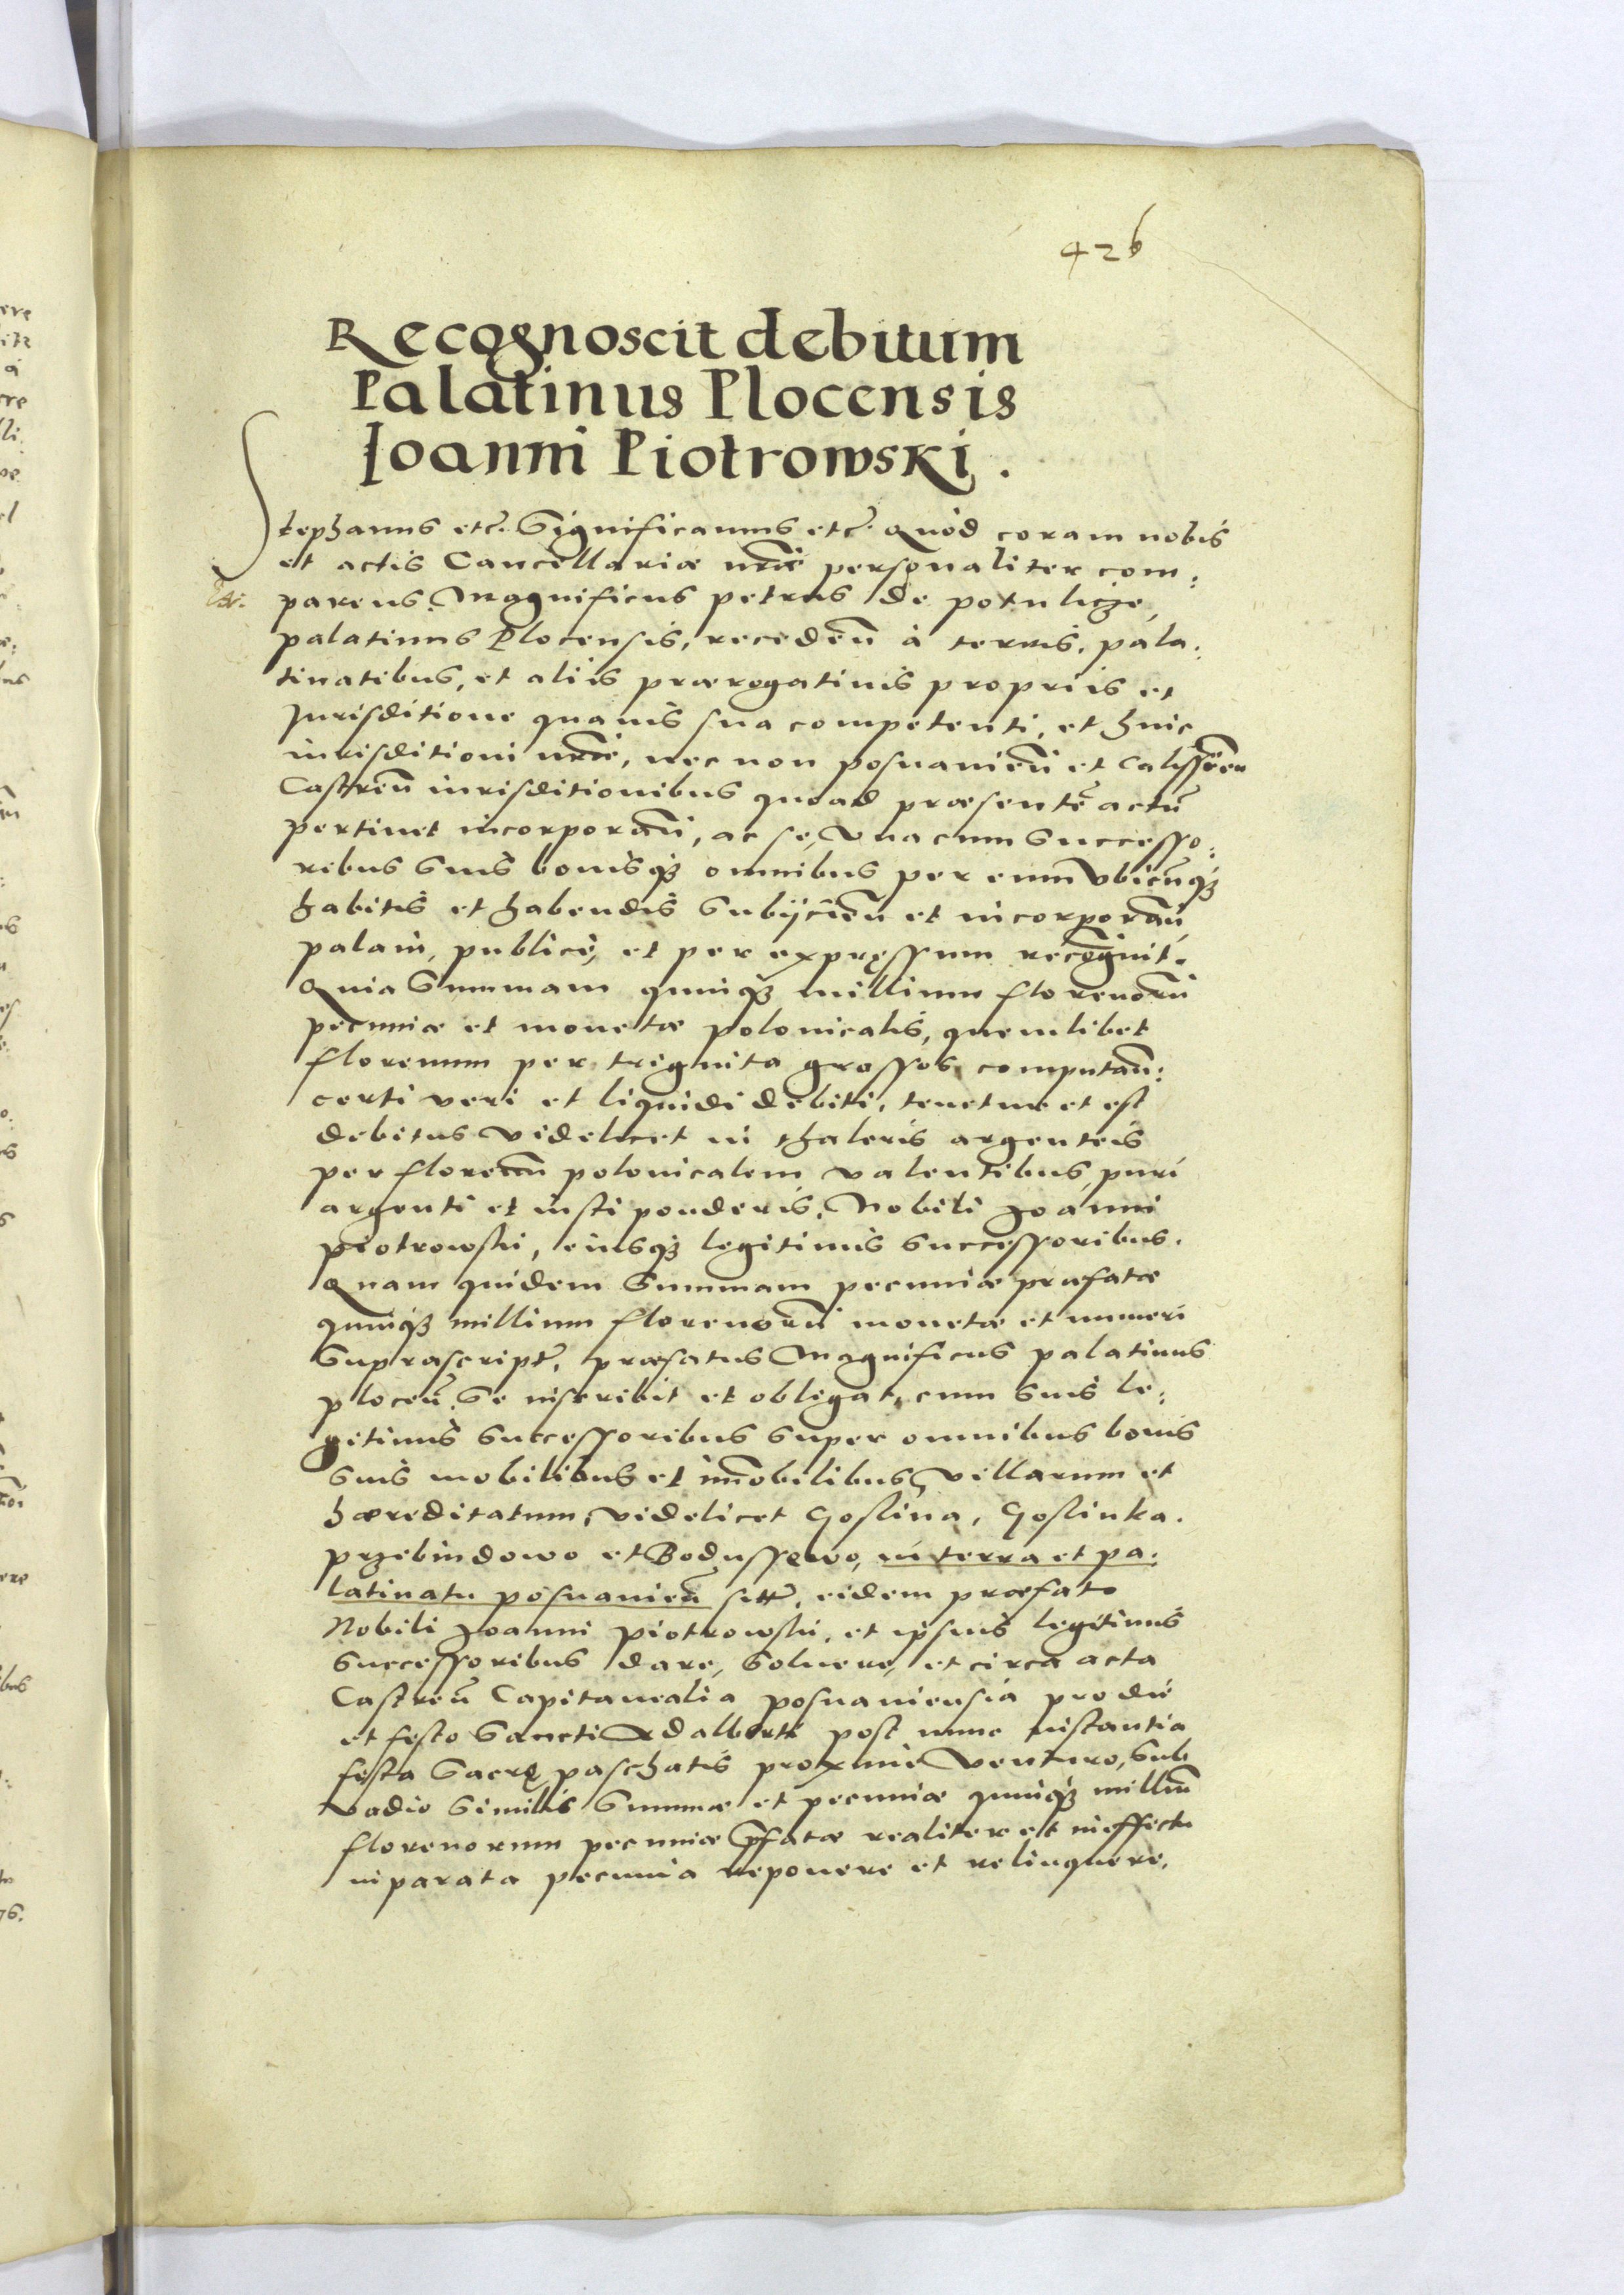 426
Recognoscit debitum
Palatinus Plocensis
Joanni Piotrowski.
Stephanus etc̃. Significamus etc̃. Quòd coram nobis
et actis Cancellariæ nr̃æ personaliter com:
parens Magnificus petrus de potulicze,
palatinus Plocensis, recedeñ à terris, pala:
tinatibus, et aliis prærogativis propriis et
Jurisditione quavis sua competenti, et huic
iurisditioni nr̃æ, nec non posnanieñ et Calisseñ
Castreñ iurisditionibus quoad præsentẽ actũ
pertinet incorporañ, ac se, vna cum successo:
ribus suis bonisq3 omnibus per eum vbicũq3
habitis et habendis subijcieñ et incorporañ,
palam, publicè, et per expręssum recognovit.
Quia summam quinq3 millium florenorũ
pecuniæ et monetæ polonicalis, quemlibet
florenum per triginta grossos computañ:
certi veri et liquidi debiti, tenetur et est
debitus videlicet in thaleris argenteis
per florenũ polonicalem valentibus, puri
argenti et iusti ponderis, Nobili Joanni
piotrowski, eiusq3 legitimis successoribus.
Quam quidem summam pecuniæ præfatæ
quinq3 millium florenorũ monetæ et numeri
suprascript̃, præfatus Magnificus palatinus
ploceñ. Se inscribit et obligat, cum suis le:
gitimis successoribus super omnibus bonis
suis mobilibus et im̃obilibus, villarum et
hæreditatum, videlicet Goslina, Goslinka.
przebindowo et Bodussęwo, in terra et pa:
latinatu posnanieñ sitt̃, eidem præfato
Nobili Joanni piotrowski, et ipsius legitimis
successoribus dare, soluere, et circa acta
Castreñ Capitanealia posnaniensia pro die
et festo Sancti Adalberti post nunc instantia
festa Sacrę paschatis proximè venturo, sub
vadio similis summæ et pecuniæ quinq3 milliũ
florenorum pecuniæ p̃fatæ realiter et in effectu
in parata pecunia reponere et relinquere,